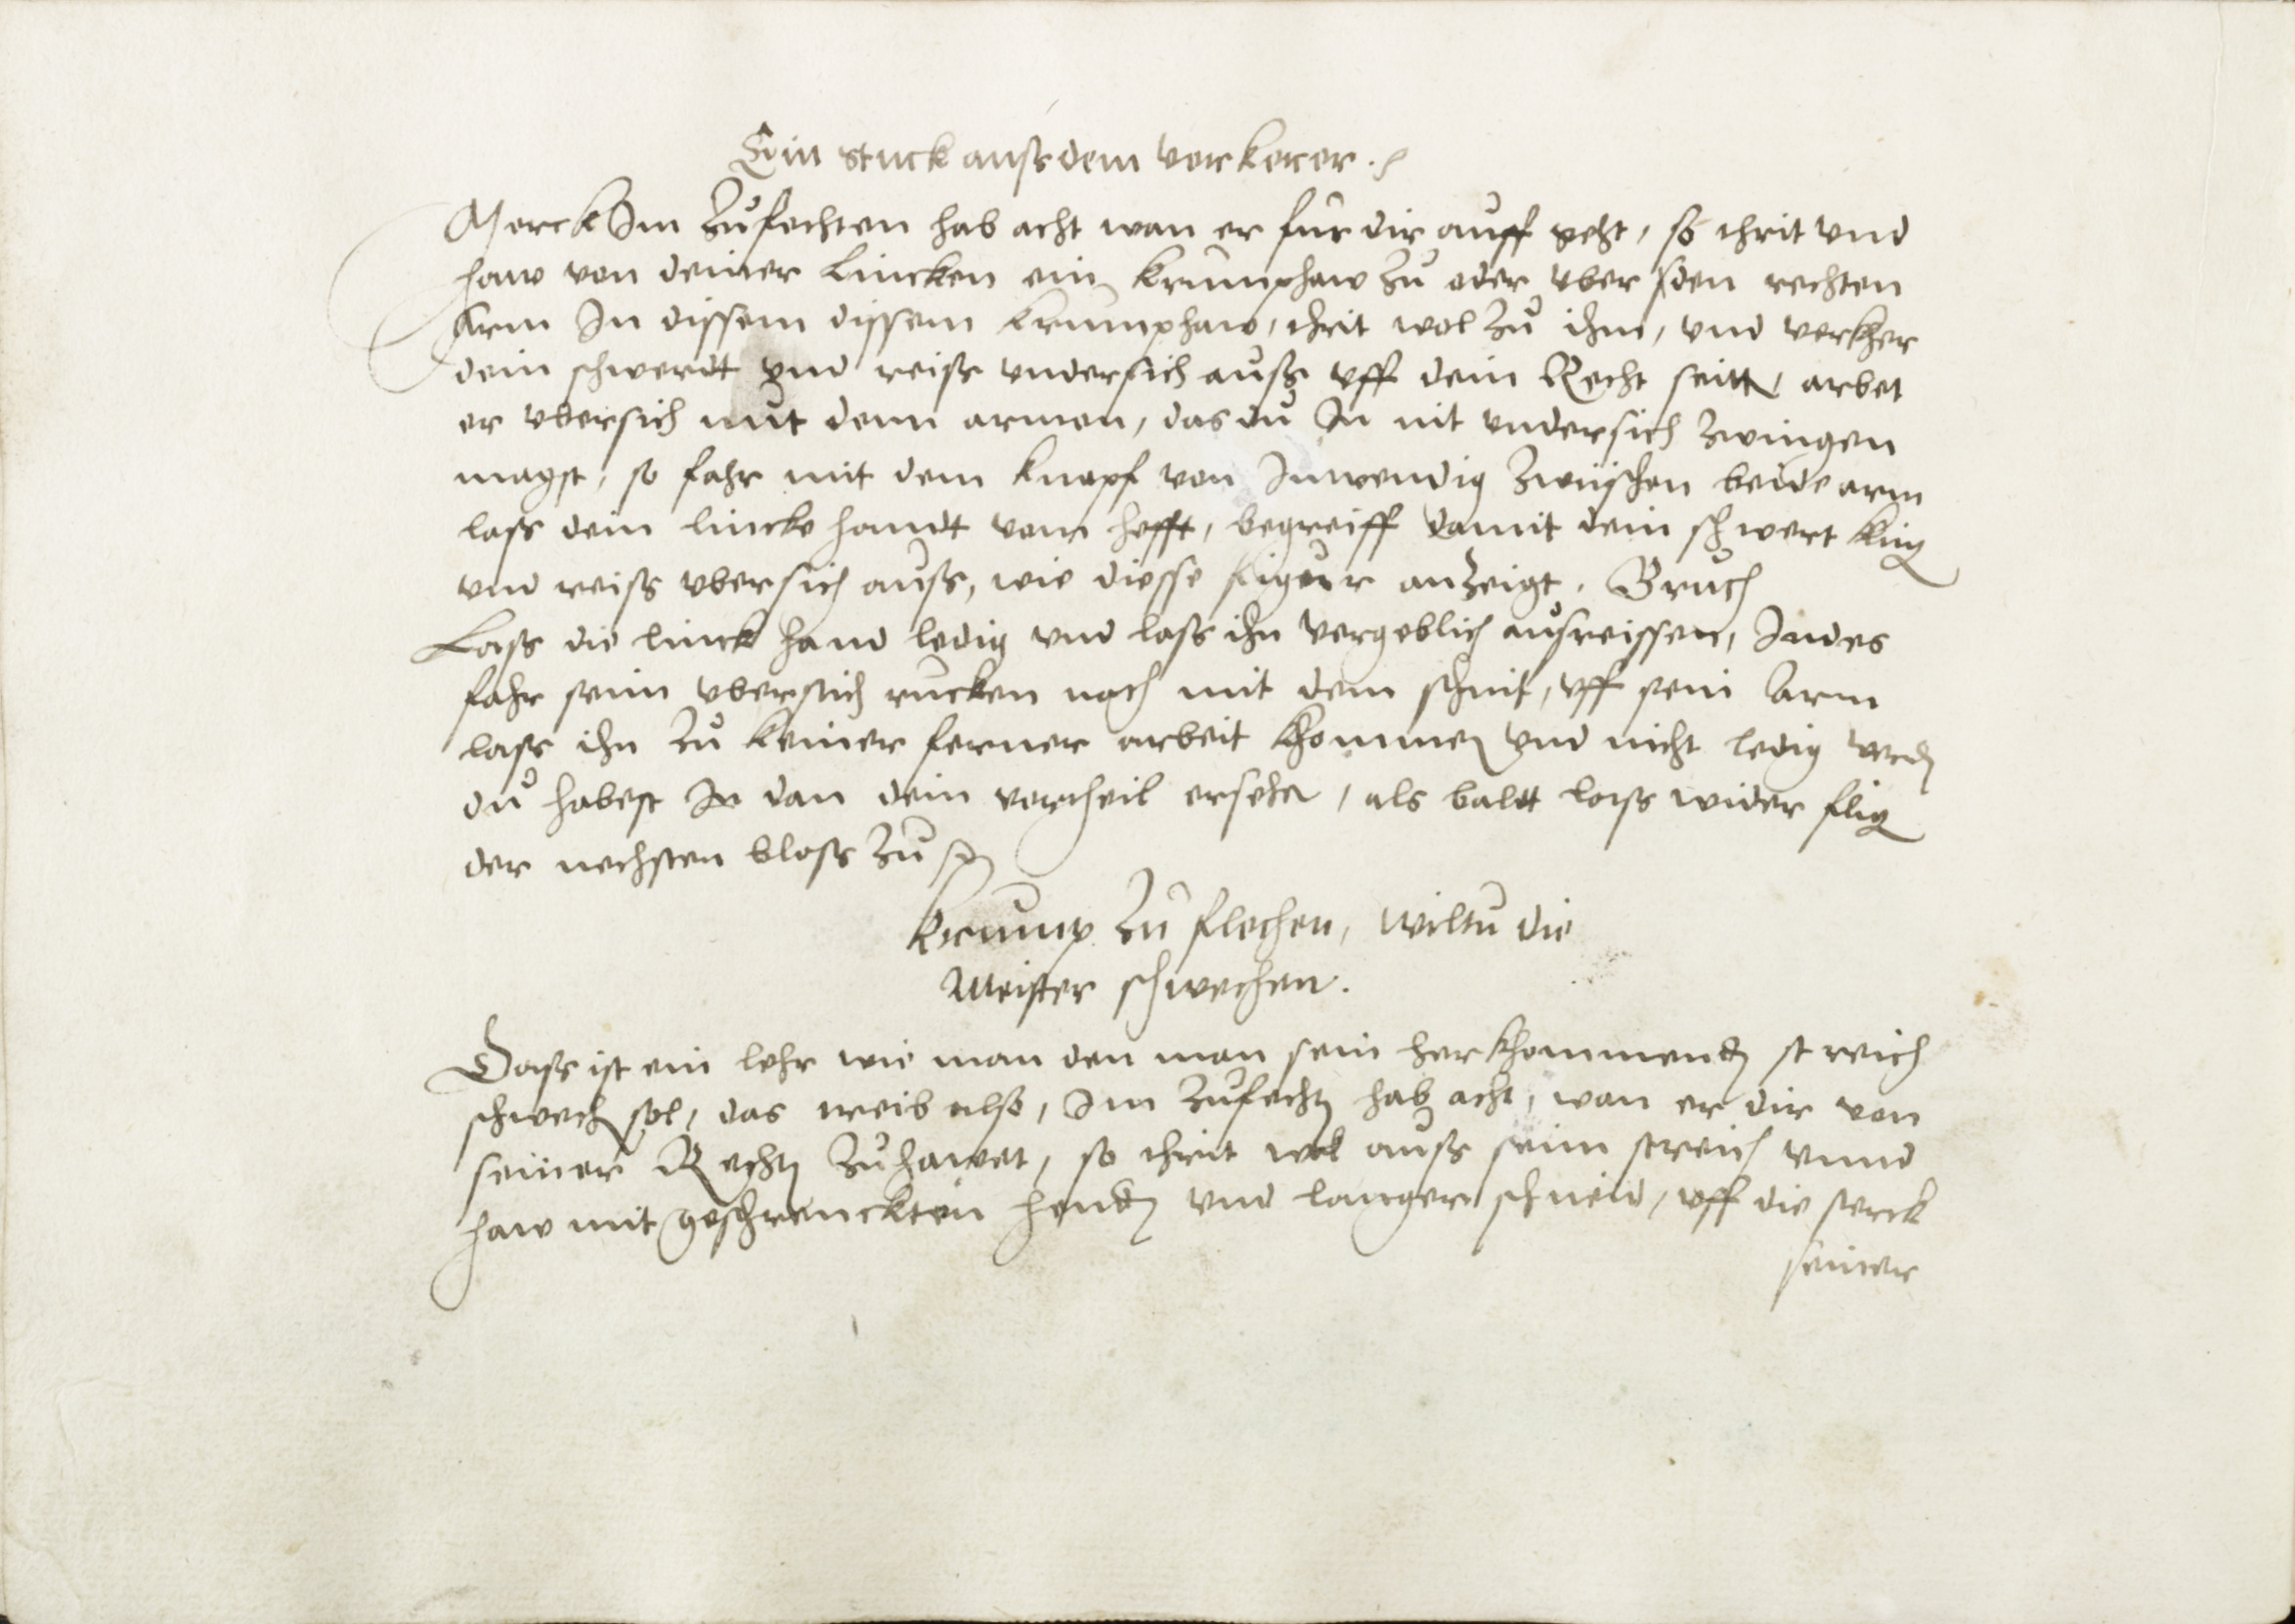 Ein stuck auß dem verkerer.
Merck Im zůfechten hab acht wan er fur dir auff geht, so thrit vnd
haw von deiner Lincken ein krumphaw zů oder vber den rechten
Arm In dissem dissem krumphaw, thrit wol zů ihm, vnd verkher
dein schwerdt vnd reiß vndersich auß vff dein Recht seitt, arbet
er vbersich mit denn armen, das dů In nit vndersich zwingen
magst, so fahr mit dem knopf von Inwendig zwüschen beide arm
laß dein lincke handt vom hefft, begreiff damit dein schwert kling
vnd reiß vbersich auß, wie diesse figur anzeigt. Bruch
Laß die linck hand ledig vnd laß ihn vergeblich außreissen, Indes
fahr seim vbersich rucken noch mit dem schnit, vff sein Arm
laß ihn zů keiner ferner arbeit khommen vnd nicht ledig werden
dů habest In dan dein vortheil ersehen, als baldt loß wider flig
der nechsten bloß zů
Krump zů flechen, wiltu die
Meister schwechen.
Daß ist ein lehr wie man den man sein herkhommenden streich
schwechen sol, das treib also, Im zůfechten hab acht, wan er dir von
seiner Rechten zuhawet, so thrit wol auß seim streich vnnd
haw mit geschrenckten henden vnd langer schneid, vff die sterck
seiner